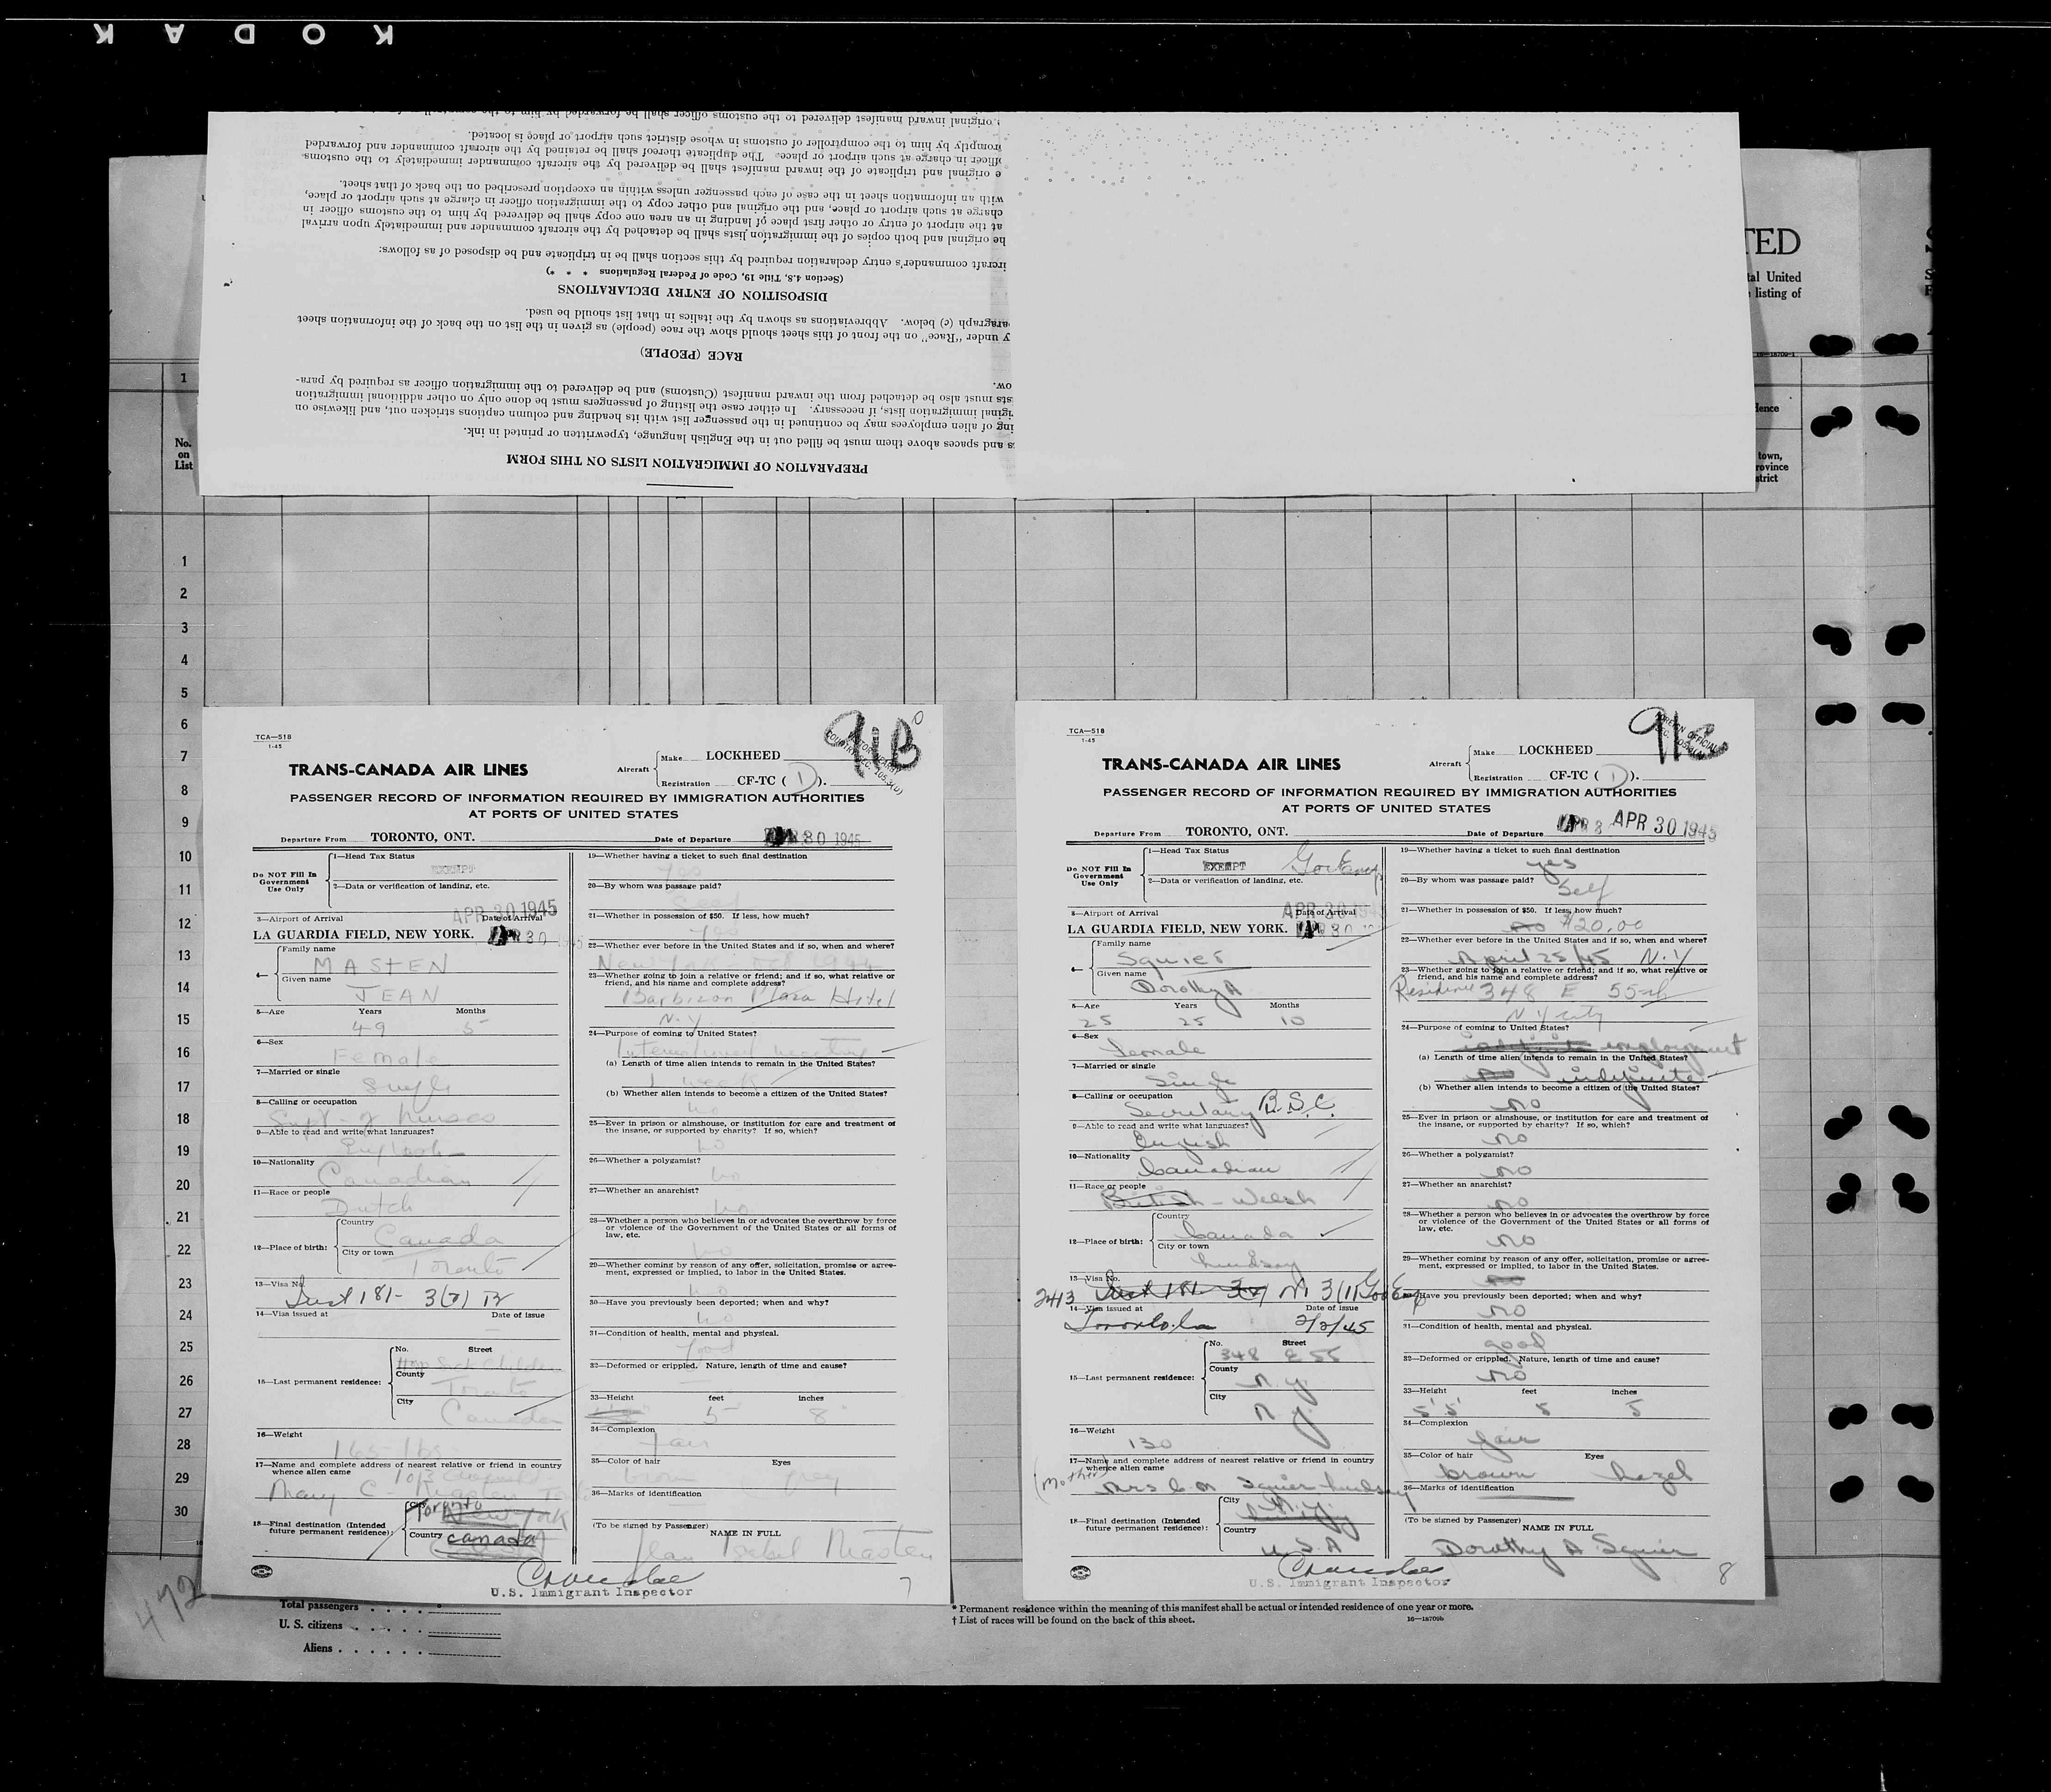 KODAK
PREPARATION OF IMMIGRATION LISTS ON THIS FORM
s and spaces above them must be filled out in the English language, typewritten or printed in ink.
ing of alien employees may be continued in the passenger list with its heading and column captions stricken out, and likewise on
iginal immigration lists, if necessary. In either case the listing of passengers must be done only on other additional immigration
sts must also be detached from the inward manifest (Customs) and be delivered to the immigration officer as required by para-
ow.
RACE (PEOPLE)
y under "Race" on the front of this sheet should show the race (people) as given in the list on the back of the information sheet
aragraph (c) below. Abbreviations as shown by the italics in that list should be used.
DISPOSITION OF ENTRY DECLARATIONS
(Section 4.8, Title 19, Code of Federal Regulations * * *)
ircraft commander's entry declaration required by this section shall be in triplicate and be disposed of as follows:
he original and both copies of the immigration lists shall be detached by the aircraft commander and immediately upon arrival
at the airport of entry or other first place of landing in an area one copy shall be delivered by him to the customs officer in
charge at such airport or place, and the original and other copy to the immigration officer in charge at such airport or place,
with an information sheet in the case of each passenger unless within an exception prescribed on the back of that sheet.
e original and triplicate of the inward manifest shall be delivered by the aircraft commander immediately to the customs
officer in charge at such airport or place. The duplicate thereof shall be retained by the aircraft commander and forwarded
promptly by him to the comptroller of customs in whose district such airport or place is located.
original inward manifest delivered to the customs officer shall be forwarded by him to the
TED
tal United
listing of
16—18709-1
dence
town,
rovince
strict
No.
on
List
1
1
2
3
4
5
6
7
8
9
10
11
12
13
14
15
16
17
18
19
20
21
22
23
24
25
26
27
28
29
30
TCA—518
1-45
91B
TRANS-CANADA AIR LINES
Aircraft
Make LOCKHEED
Registration CF-TC ( 1 ).
PASSENGER RECORD OF INFORMATION REQUIRED BY IMMIGRATION AUTHORITIES
AT PORTS OF UNITED STATES
Departure From TORONTO, ONT. Date of Departure APR 30 1945
Do NOT Fill In
Government
Use Only
1—Head Tax Status
EXEMPT
2—Data or verification of landing, etc.
3—Airport of Arrival Date of Arrival
APR 30 1945
LA GUARDIA FIELD, NEW YORK. APR 30 1945
4—
Family name
MASTEN
Given name
JEAN
5—Age Years Months
49 5
6—Sex
Female
7—Married or single
Single
8—Calling or occupation
Supt of Nurses
9—Able to read and write what languages?
English
10—Nationality
Canadian
11—Race or people
Dutch
12—Place of birth:
Country
Canada
City or town
Toronto
13—Visa No.
Inst 181- 3(2) B
14—Visa issued at Date of issue
15—Last permanent residence:
No. Street
Hosp Sick Children
County
Toronto
City
Canada
16—Weight
165 lbs
17—Name and complete address of nearest relative or friend in country
whence alien came
Mary C. Masten
18—Final destination (Intended
future permanent residence):
City
Toronto New York
Country
Canada
19—Whether having a ticket to such final destination
Yes
20—By whom was passage paid?
Self
21—Whether in possession of $50. If less, how much?
Yes
22—Whether ever before in the United States and if so, when and where?
New York Oct 1944
23—Whether going to join a relative or friend; and if so, what relative or
friend, and his name and complete address?
Barbizon Plaza Hotel
N.Y.
24—Purpose of coming to United States?
International meeting
(a) Length of time alien intends to remain in the United States?
1 week
(b) Whether alien intends to become a citizen of the United States?
No
25—Ever in prison or almshouse, or institution for care and treatment of
the insane, or supported by charity? If so, which?
No
26—Whether a polygamist?
No
27—Whether an anarchist?
No
28—Whether a person who believes in or advocates the overthrow by force
or violence of the Government of the United States or all forms of
law, etc.
No
29—Whether coming by reason of any offer, solicitation, promise or agree-
ment, expressed or implied, to labor in the United States.
No
30—Have you previously been deported; when and why?
No
31—Condition of health, mental and physical.
Good
32—Deformed or crippled. Nature, length of time and cause?
33—Height feet inches
5 8
34—Complexion
fair
35—Color of hair Eyes
brown grey
36—Marks of identification
(To be signed by Passenger)
NAME IN FULL
Jean Isabel Masten
U.S. Immigrant Inspector
7
TCA—518
1-45
TRANS-CANADA AIR LINES
Aircraft
Make LOCKHEED
Registration CF-TC ( 1 ).
PASSENGER RECORD OF INFORMATION REQUIRED BY IMMIGRATION AUTHORITIES
AT PORTS OF UNITED STATES
Departure From TORONTO, ONT. Date of Departure APR 30 1945
Do NOT Fill In
Government
Use Only
1—Head Tax Status
EXEMPT Gov Emp
2—Data or verification of landing, etc.
3—Airport of Arrival Date of Arrival
APR 30 1945
LA GUARDIA FIELD, NEW YORK. APR 30
4—
Family name
Squier
Given name
Dorothy A
5—Age Years Months
25 25 10
6—Sex
Female
7—Married or single
Single
8—Calling or occupation
Secretary B.S.C.
9—Able to read and write what languages?
English
10—Nationality
Canadian
11—Race or people
British - Welsh
12—Place of birth:
Country
Canada
City or town
Lindsay
13—Visa No.
2413 Inst 181 3(2) 3(1) Gov Emp
14—Visa issued at Date of issue
Toronto, Ca 2/2/45
15—Last permanent residence:
No. Street
348 E 55
County
N.Y.
City
N.Y.
16—Weight
130
17—Name and complete address of nearest relative or friend in country
whence alien came
(Mother)
Mrs C. M Squier Lindsay
18—Final destination (Intended
future permanent residence):
City
N.Y.
Country
U.S.A
19—Whether having a ticket to such final destination
yes
20—By whom was passage paid?
Self
21—Whether in possession of $50. If less, how much?
no $20.00
22—Whether ever before in the United States and if so, when and where?
April 25/45 N.Y
23—Whether going to join a relative or friend; and if so, what relative or
friend, and his name and complete address?
Residence 348 E 55th
N Y City
24—Purpose of coming to United States?
indefinite employment
(a) Length of time alien intends to remain in the United States?
no indefinite
(b) Whether alien intends to become a citizen of the United States?
no
25—Ever in prison or almshouse, or institution for care and treatment of
the insane, or supported by charity? If so, which?
no
26—Whether a polygamist?
no
27—Whether an anarchist?
no
28—Whether a person who believes in or advocates the overthrow by force
or violence of the Government of the United States or all forms of
law, etc.
no
29—Whether coming by reason of any offer, solicitation, promise or agree-
ment, expressed or implied, to labor in the United States.
no
Have you previously been deported; when and why?
no
31—Condition of health, mental and physical.
good
32—Deformed or crippled. Nature, length of time and cause?
no
33—Height feet inches
5'5" 5 5
34—Complexion
fair
35—Color of hair Eyes
brown hazel
36—Marks of identification
(To be signed by Passenger)
NAME IN FULL
Dorothy A Squier
U.S. Immigrant Inspector
8
472
Total passengers
U. S. citizens
Aliens
* Permanent residence within the meaning of this manifest shall be actual or intended residence of one year or more.
† List of races will be found on the back of this sheet. 16—18709b